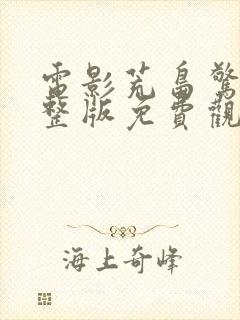 電影荒島驚
整版免費觀
海上奇峰